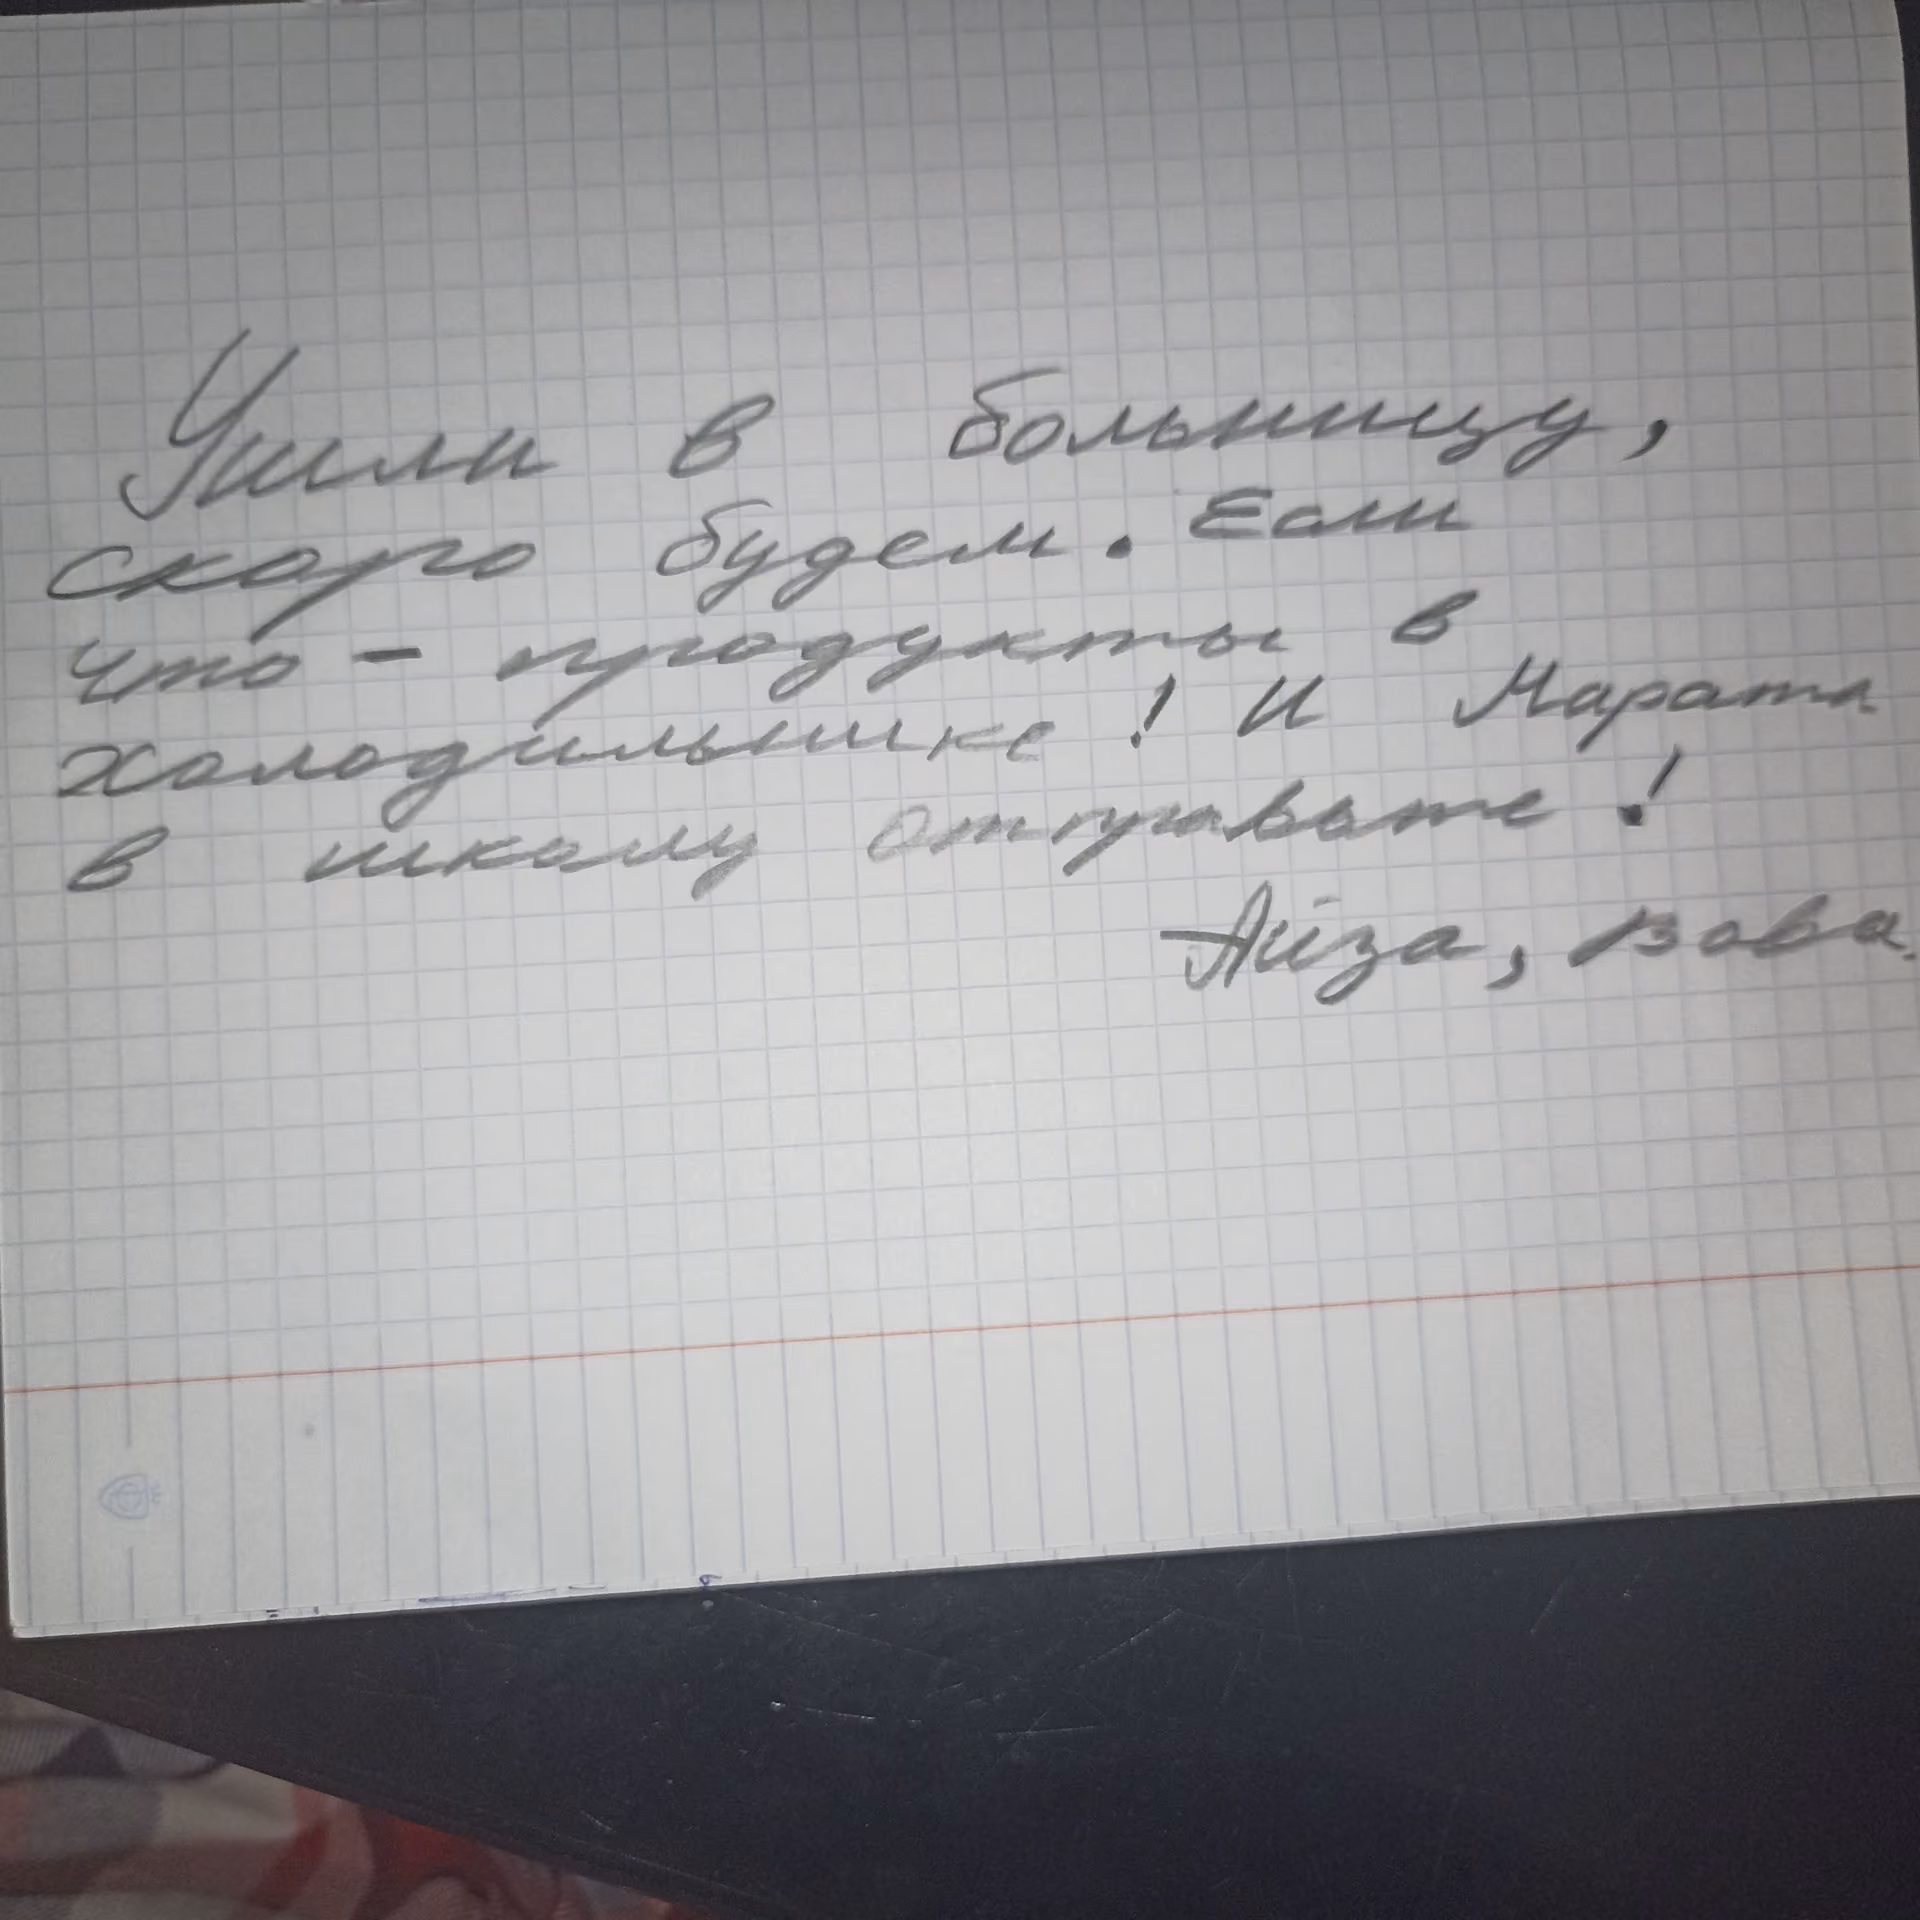 Ушли в больницу,
скоро будем. Если
что - продукты в
холодильнике! И Марата
в школу отправьте!
Айза, Вова.